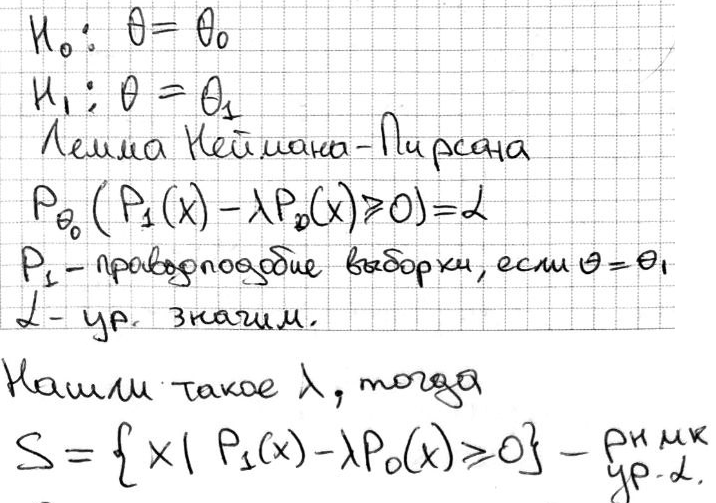 H₀: θ = θ₀
H₁: θ = θ₁
Лемма Неймана-Пирсона
P_θ₀(P₁(x) - λP₀(x) ≥ 0) = α
P₁ - праводподобие выборки, если θ = θ₁
α - ур. значим.
Нашли такое λ, тогда
S = {x | P₁(x) - λP₀(x) ≥ 0} - рнмк
ур. α.